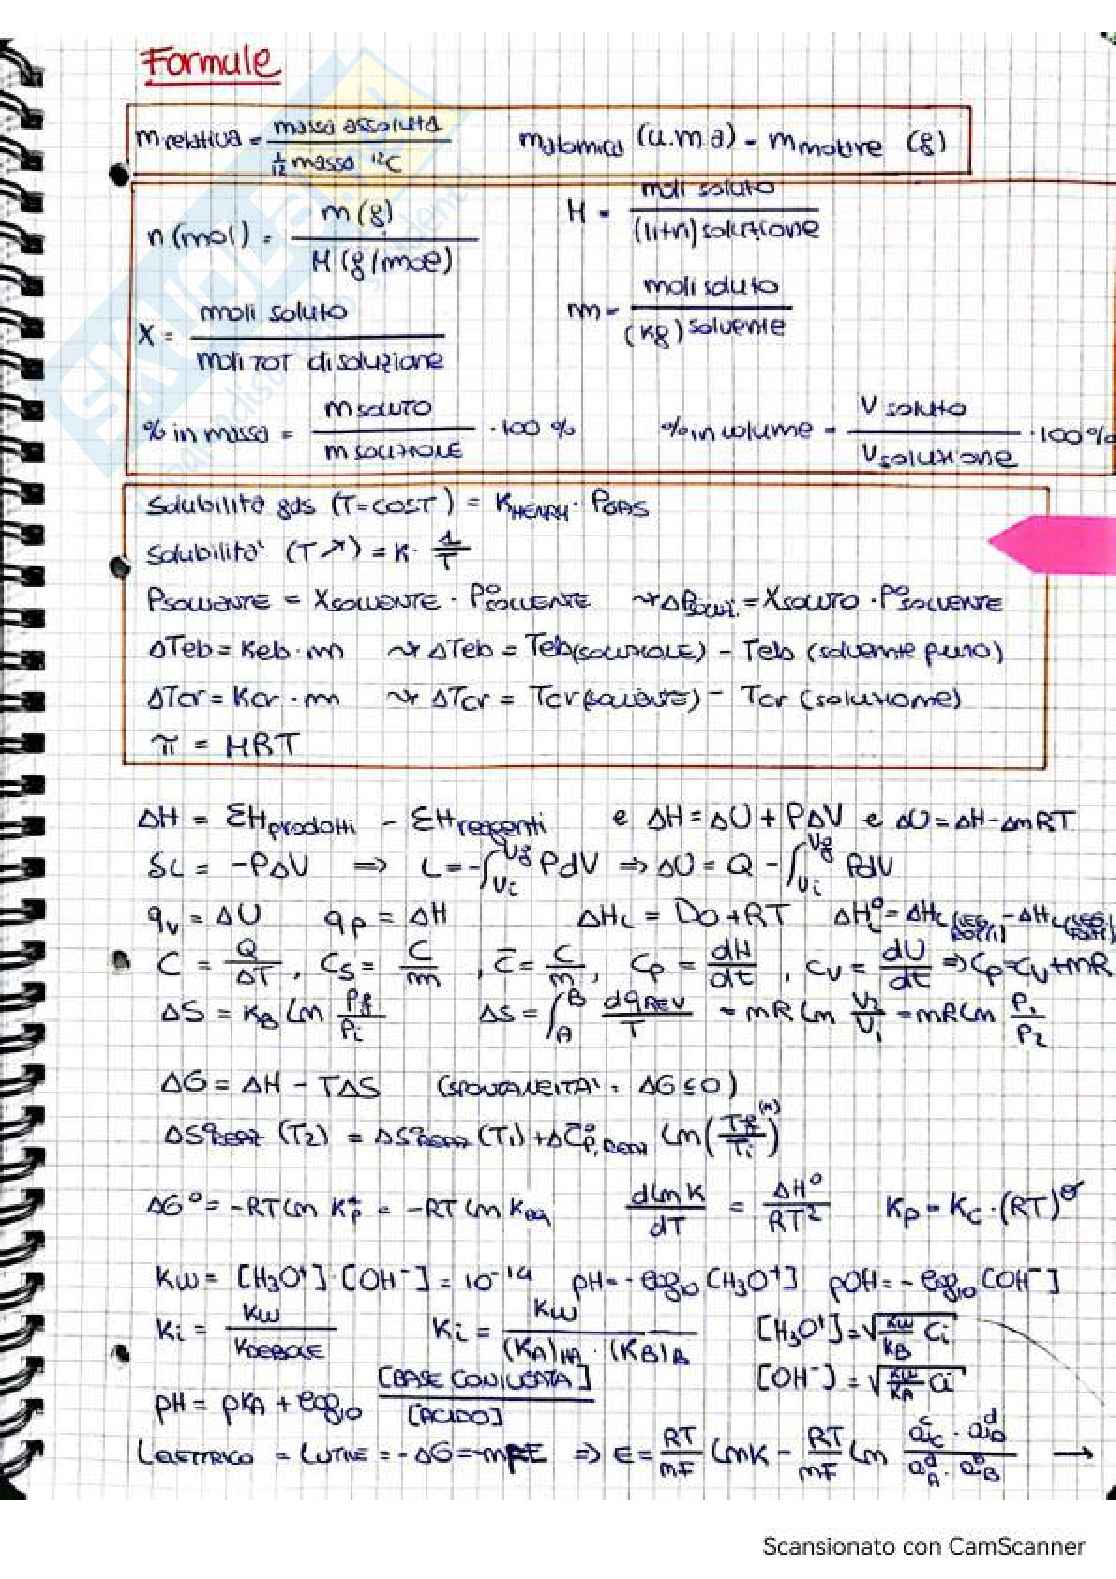 Formule
m relativa = massa assoluta / 1/12 massa ¹²C    m atomica (u.m.a) = m molare (g)
n(mol) = m(g) / M(g/mol)    M = moli soluto / (litri) soluzione
X = moli soluto / moli TOT di soluzione    m = moli soluto / (kg) solvente
% in massa = m SOLUTO / m SOLUZIONE · 100 %    % in volume = V soluto / V soluzione · 100 %
Solubilità gas (T=COST) = K HENRY · P GAS
Solubilità (T↗) = K · 1/T
P SOLVENTE = X SOLVENTE · P° SOLVENTE ⤳ ΔP = X SOLUTO · P° SOLVENTE
ΔTeb = Keb · m ⤳ ΔTeb = Teb (SOLUZIONE) − Teb (solvente puro)
ΔTcr = Kcr · m ⤳ ΔTcr = Tcr (solvente) − Tcr (soluzione)
π = MRT
ΔH = ΣH prodotti − ΣH reagenti    e ΔH = ΔU + PΔV e ΔU = ΔH − ΔnRT
δL = −PΔV ⟹ L = −∫Vi Vf PdV ⟹ ΔU = Q − ∫Vi Vf PdV
qv = ΔU    qp = ΔH    ΔHL = D0 + RT    ΔH°L = ΔHL − ΔHL
C = Q/ΔT , Cs = C/m , C̄ = C/m , Cp = dH/dt , Cv = dU/dt ⟹ Cp = Cv + nR
ΔS = KB ln Pf/Pi    ΔS = ∫A B dq REV/T = nR ln V2/V1 = nR ln P1/P2
ΔG = ΔH − TΔS    (SPONTANEITA' : ΔG ≤ 0)
ΔS° REAZ (T2) = ΔS° REAZ (T1) + ΔC̄°P, REAZ ln (Tf/Ti)
ΔG° = −RT ln K°p = −RT ln Keq    dlnK/dT = ΔH°/RT²    Kp = Kc · (RT)^σ
Kw = [H3O+] · [OH−] = 10⁻¹⁴    pH = −log10 [H3O+]    pOH = −log10 [OH−]
Ki = Kw / K DEBOLE    Ki = Kw / (KA)HA · (KB)B    [H3O+] = √(Kw/KB Ci)
[OH−] = √(Kw/KA Ci)
pH = pKA + log10 [BASE CONIUGATA] / [ACIDO]
L ELETTRICO = L UTILE = −ΔG = −nFE ⟹ E = RT/nF lnK − RT/nF ln a^c C · a^d D / a^a A · a^b B →
Scansionato con CamScanner